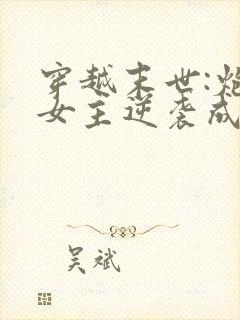 穿越末世:炮
女主逆袭成
吴斌